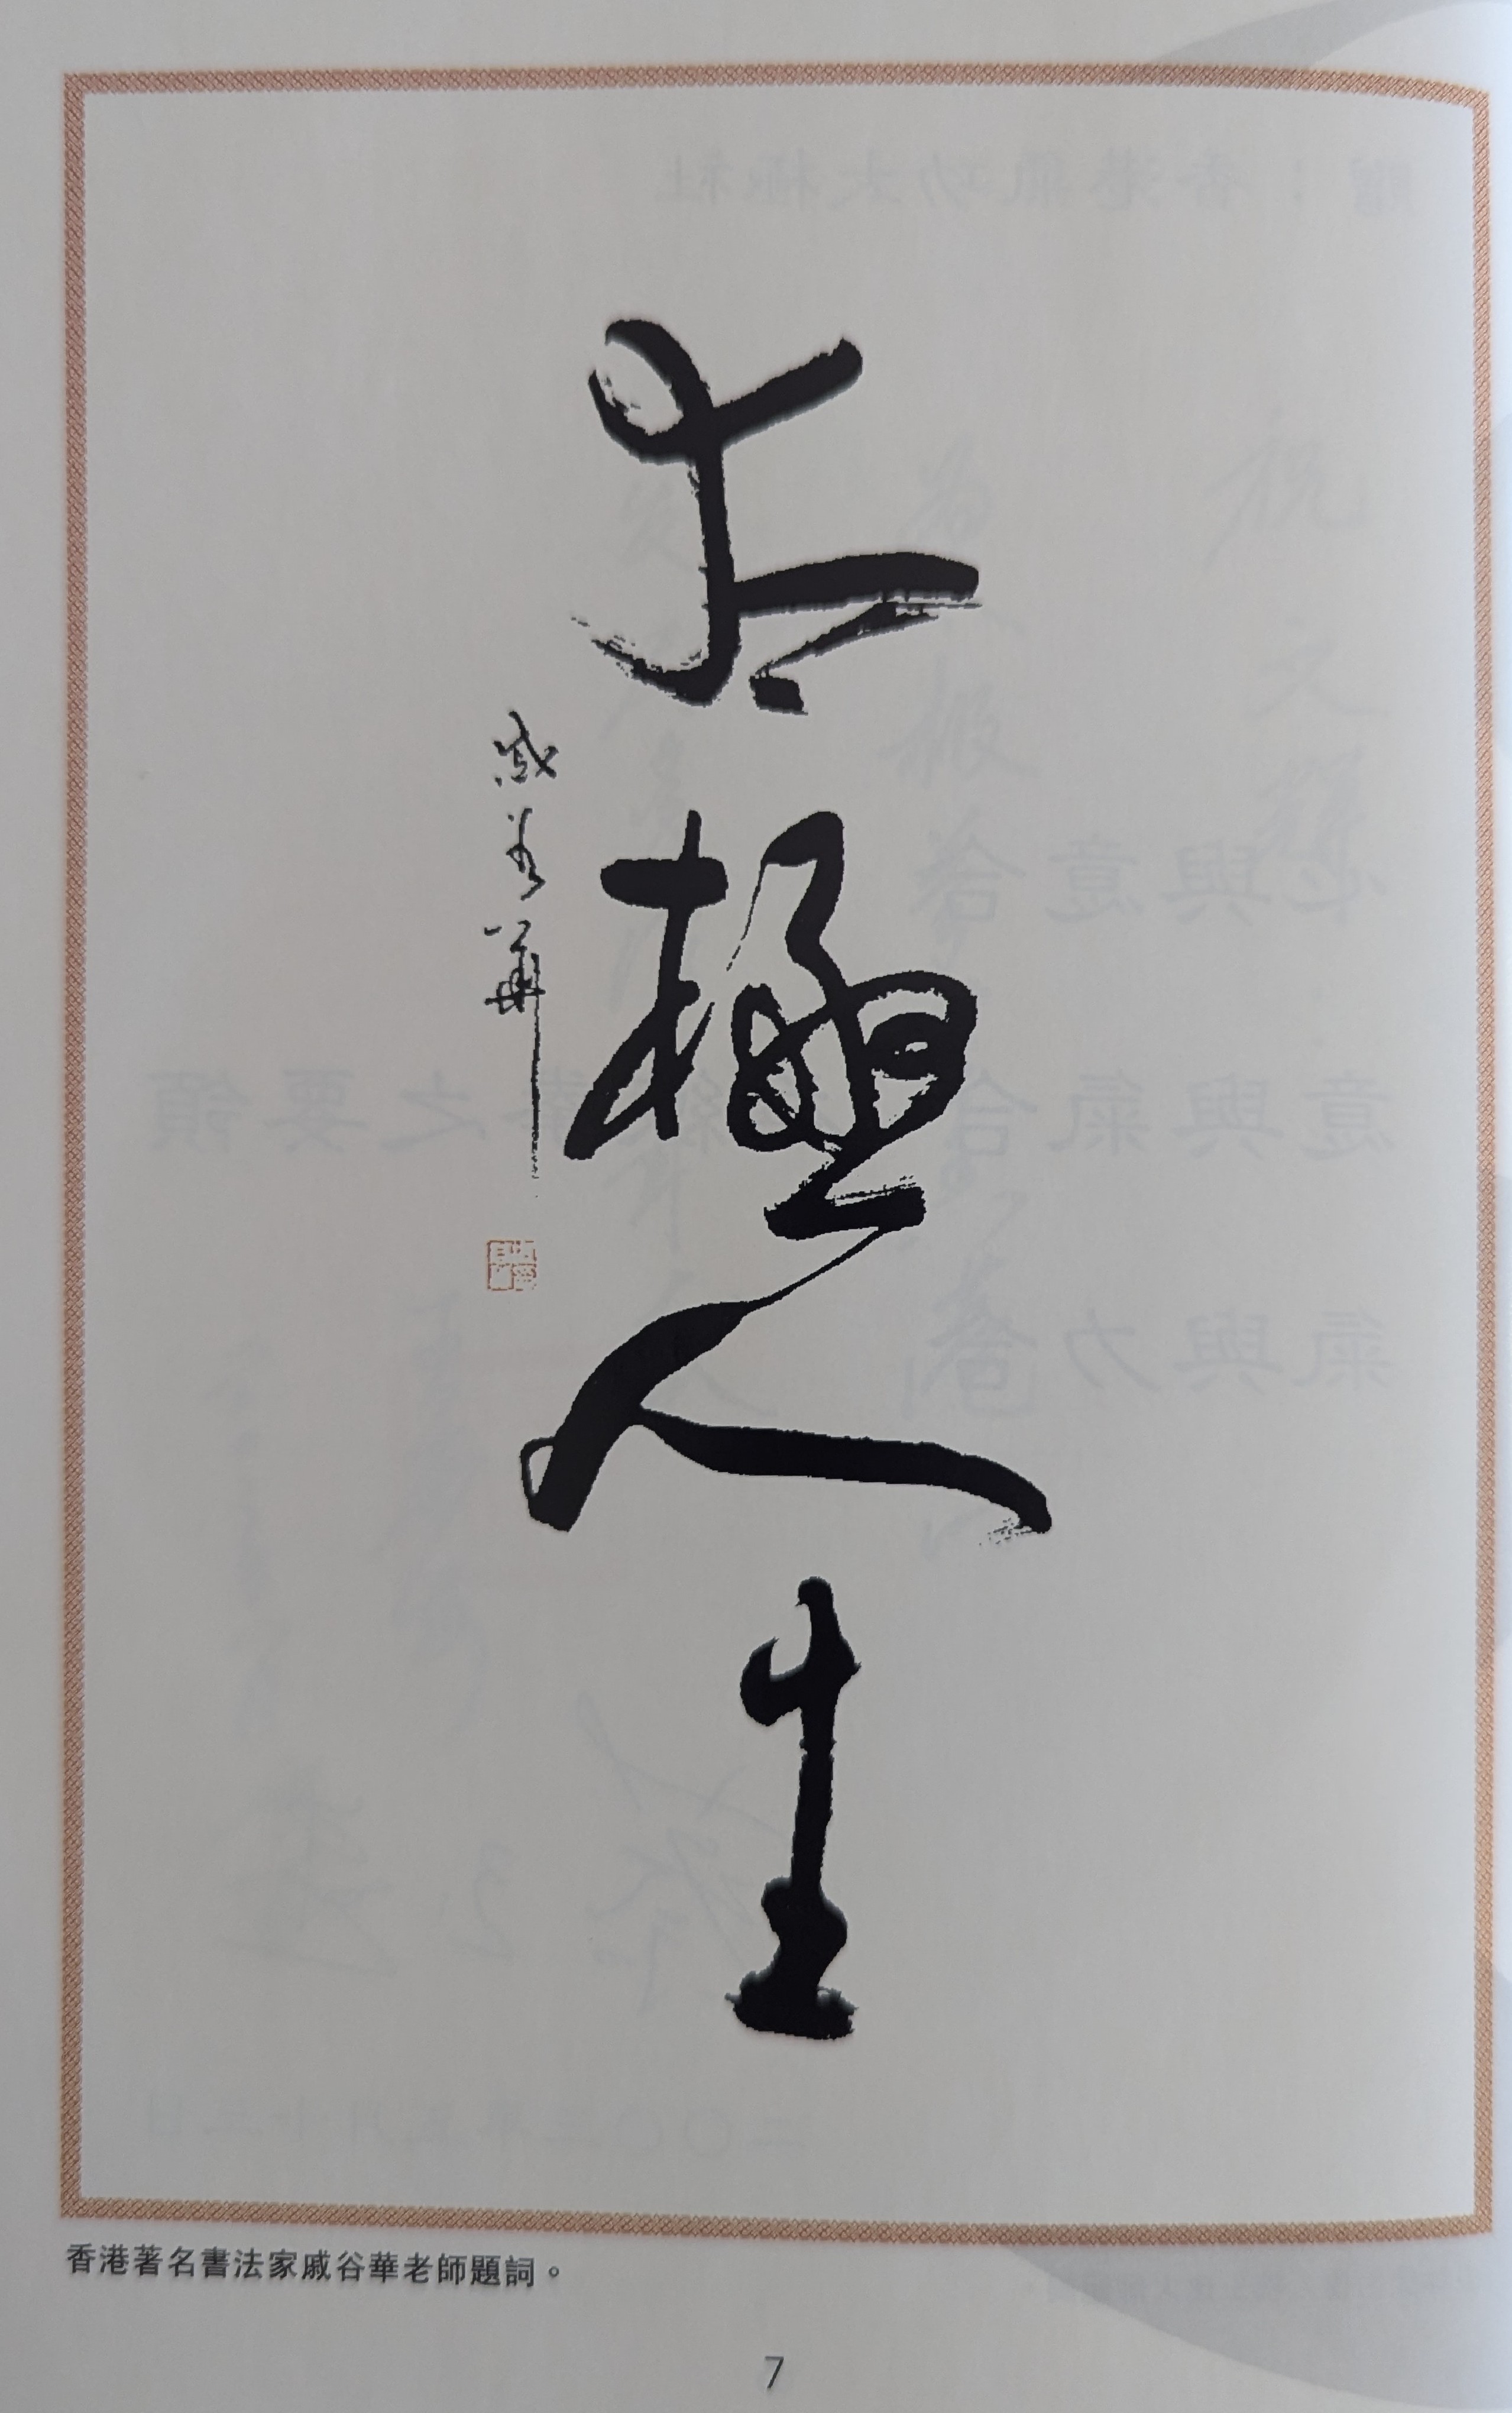 太極人生
戚谷華
香港著名書法家戚谷華老師題詞。
7